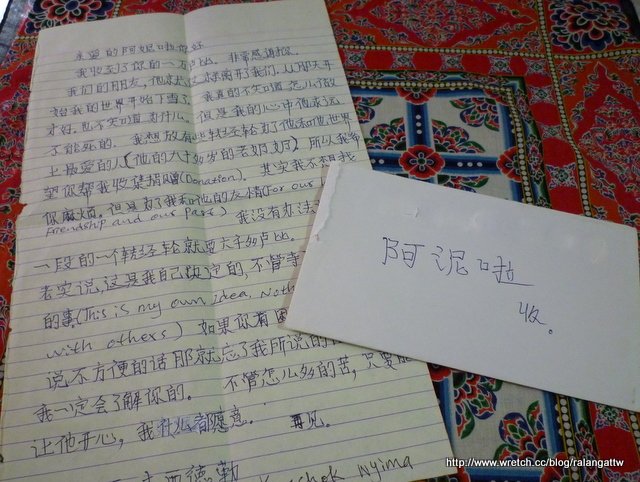 亲爱的阿妮啦你好
我收到了你的一万卢比. 非常感谢你.
我们的朋友, 他永久 离开了我们. 从那天开
始我的世界开始下雪了. 我真的不知道 怎么做
才好. 也不知道为什么. 但是我的心中他永远
了能死的. 我想放 转经轮为了他和他世界
上最爱的人(他的大 多岁的老妈妈) 所以我希
望你帮我收集捐赠(Donation). 其实我不想找
你麻烦. 但是为了我和他的友情(For our
Friendship and our past) 我没有办法
一段的一个转经轮就要 卢比.
老实说, 这是我自己决定的, 不管
的事(This is my own idea, Noth
with others) 如果你有困
说不方便的话那就忘了我所说的
我一定会了解你的. 不管怎么多的苦, 只要能
让他开心, 我什么都愿意. 再见.
扎西德勒
Nyima
阿泥啦
收.
http://www.wretch.cc/blog/ralangattw